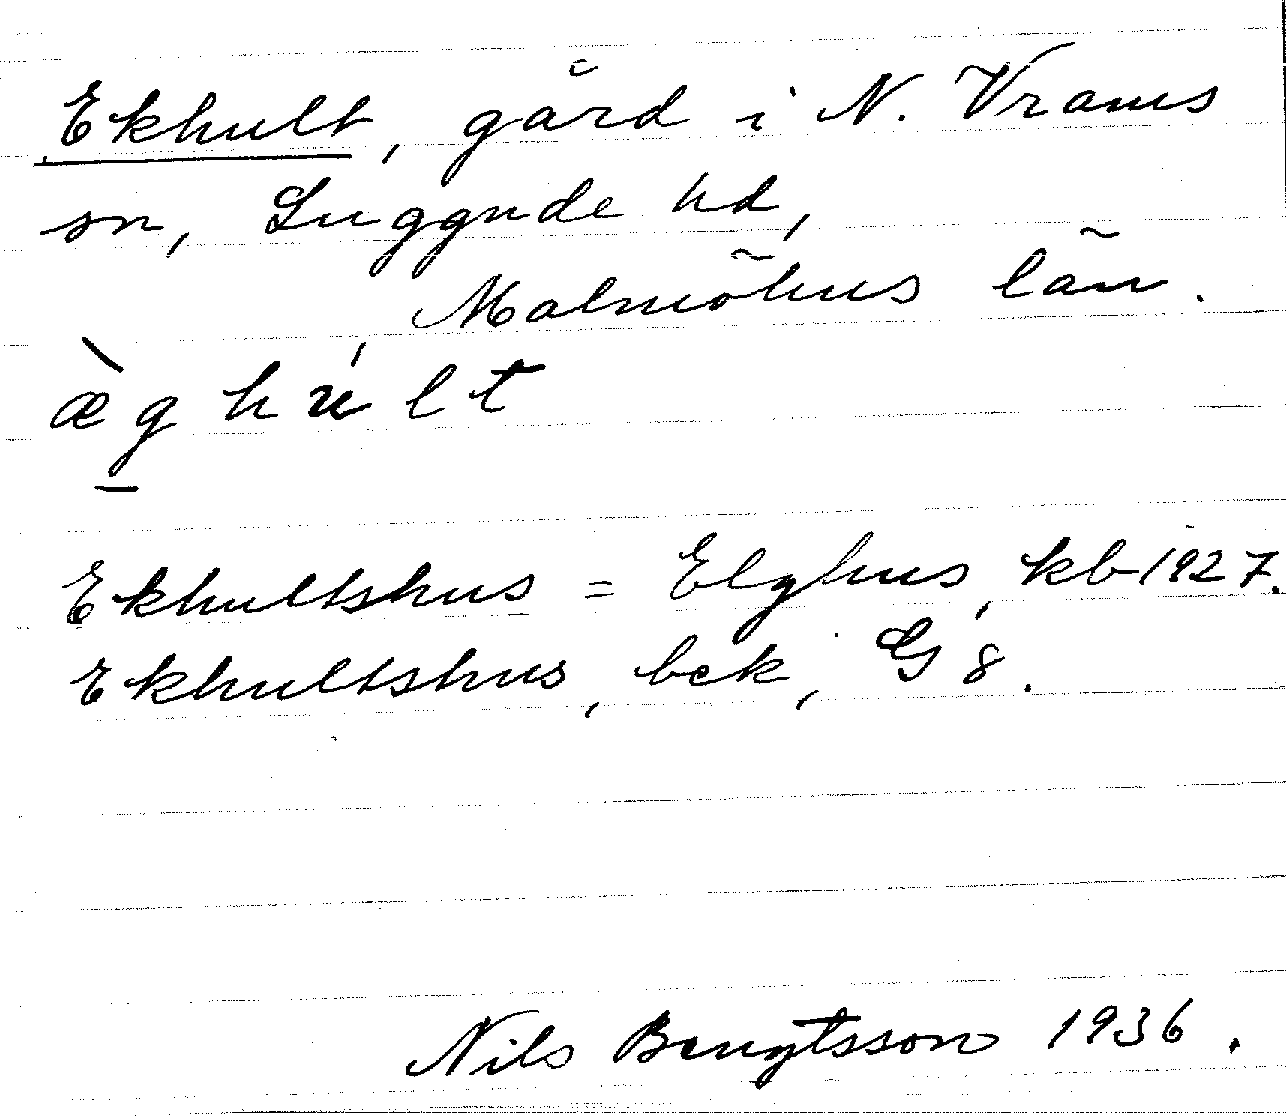 Ekhult, gård i N. Vrams
sn, Luggude hd,
Malmöhus län.
æ̀ghu̍lt
Ekhultshus = Elghus, kb 1827.
Ekhultshus, bek, G 8.
Nils Bengtsson 1936.